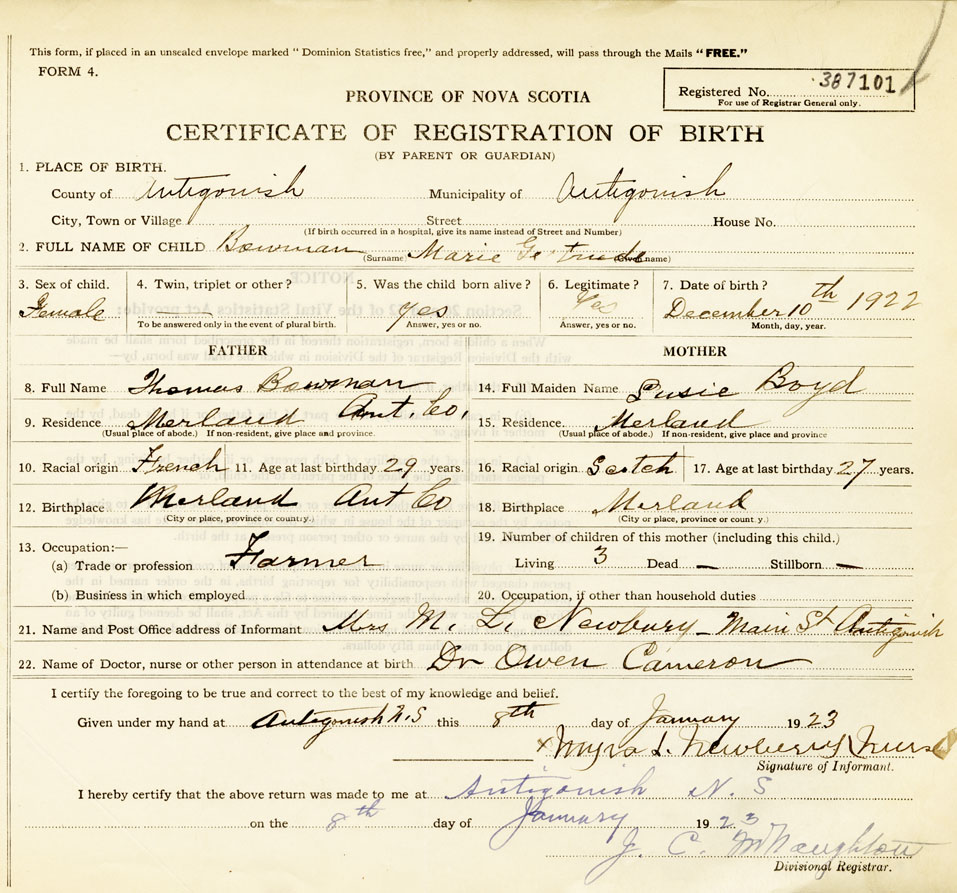 This form, if placed in an unsealed envelope marked "Dominion Statistics free," and properly addressed, will pass through the Mails "FREE."
FORM 4.
Registered No. 387101
For use of Registrar General only.
PROVINCE OF NOVA SCOTIA
CERTIFICATE OF REGISTRATION OF BIRTH
(BY PARENT OR GUARDIAN)
1. PLACE OF BIRTH.
County of Antigonish Municipality of Antigonish
City, Town or Village Street House No.
(If birth occurred in a hospital, give its name instead of Street and Number)
2. FULL NAME OF CHILD Bowman (Surname) Marie Gertrude (Given name)
3. Sex of child. 4. Twin, triplet or other? 5. Was the child born alive? 6. Legitimate? 7. Date of birth?
Female — Yes Yes December 10th 1922
To be answered only in the event of plural birth. Answer, yes or no. Answer, yes or no. Month, day, year.
FATHER MOTHER
8. Full Name Thomas Bowman 14. Full Maiden Name Susie Boyd
9. Residence Merland Ant. Co. 15. Residence. Merland
(Usual place of abode.) If non-resident, give place and province. (Usual place of abode.) If non-resident, give place and province
10. Racial origin French 11. Age at last birthday 29 years. 16. Racial origin Scotch 17. Age at last birthday 27 years.
12. Birthplace Merland Ant Co 18. Birthplace Merland
(City or place, province or country.) (City or place, province or country.)
13. Occupation:— 19. Number of children of this mother (including this child.)
(a) Trade or profession Farmer Living 3 Dead — Stillborn —
(b) Business in which employed 20. Occupation, if other than household duties
21. Name and Post Office address of Informant Mrs M. L. Newbury - Main St Antigonish
22. Name of Doctor, nurse or other person in attendance at birth Dr Owen Cameron
I certify the foregoing to be true and correct to the best of my knowledge and belief.
Given under my hand at Antigonish N.S this 8th day of January 1923
x Myra L. Newberry Nurse
Signature of Informant.
I hereby certify that the above return was made to me at Antigonish N. S
on the 8th day of January 1923
J. C. McNaughton
Divisional Registrar.